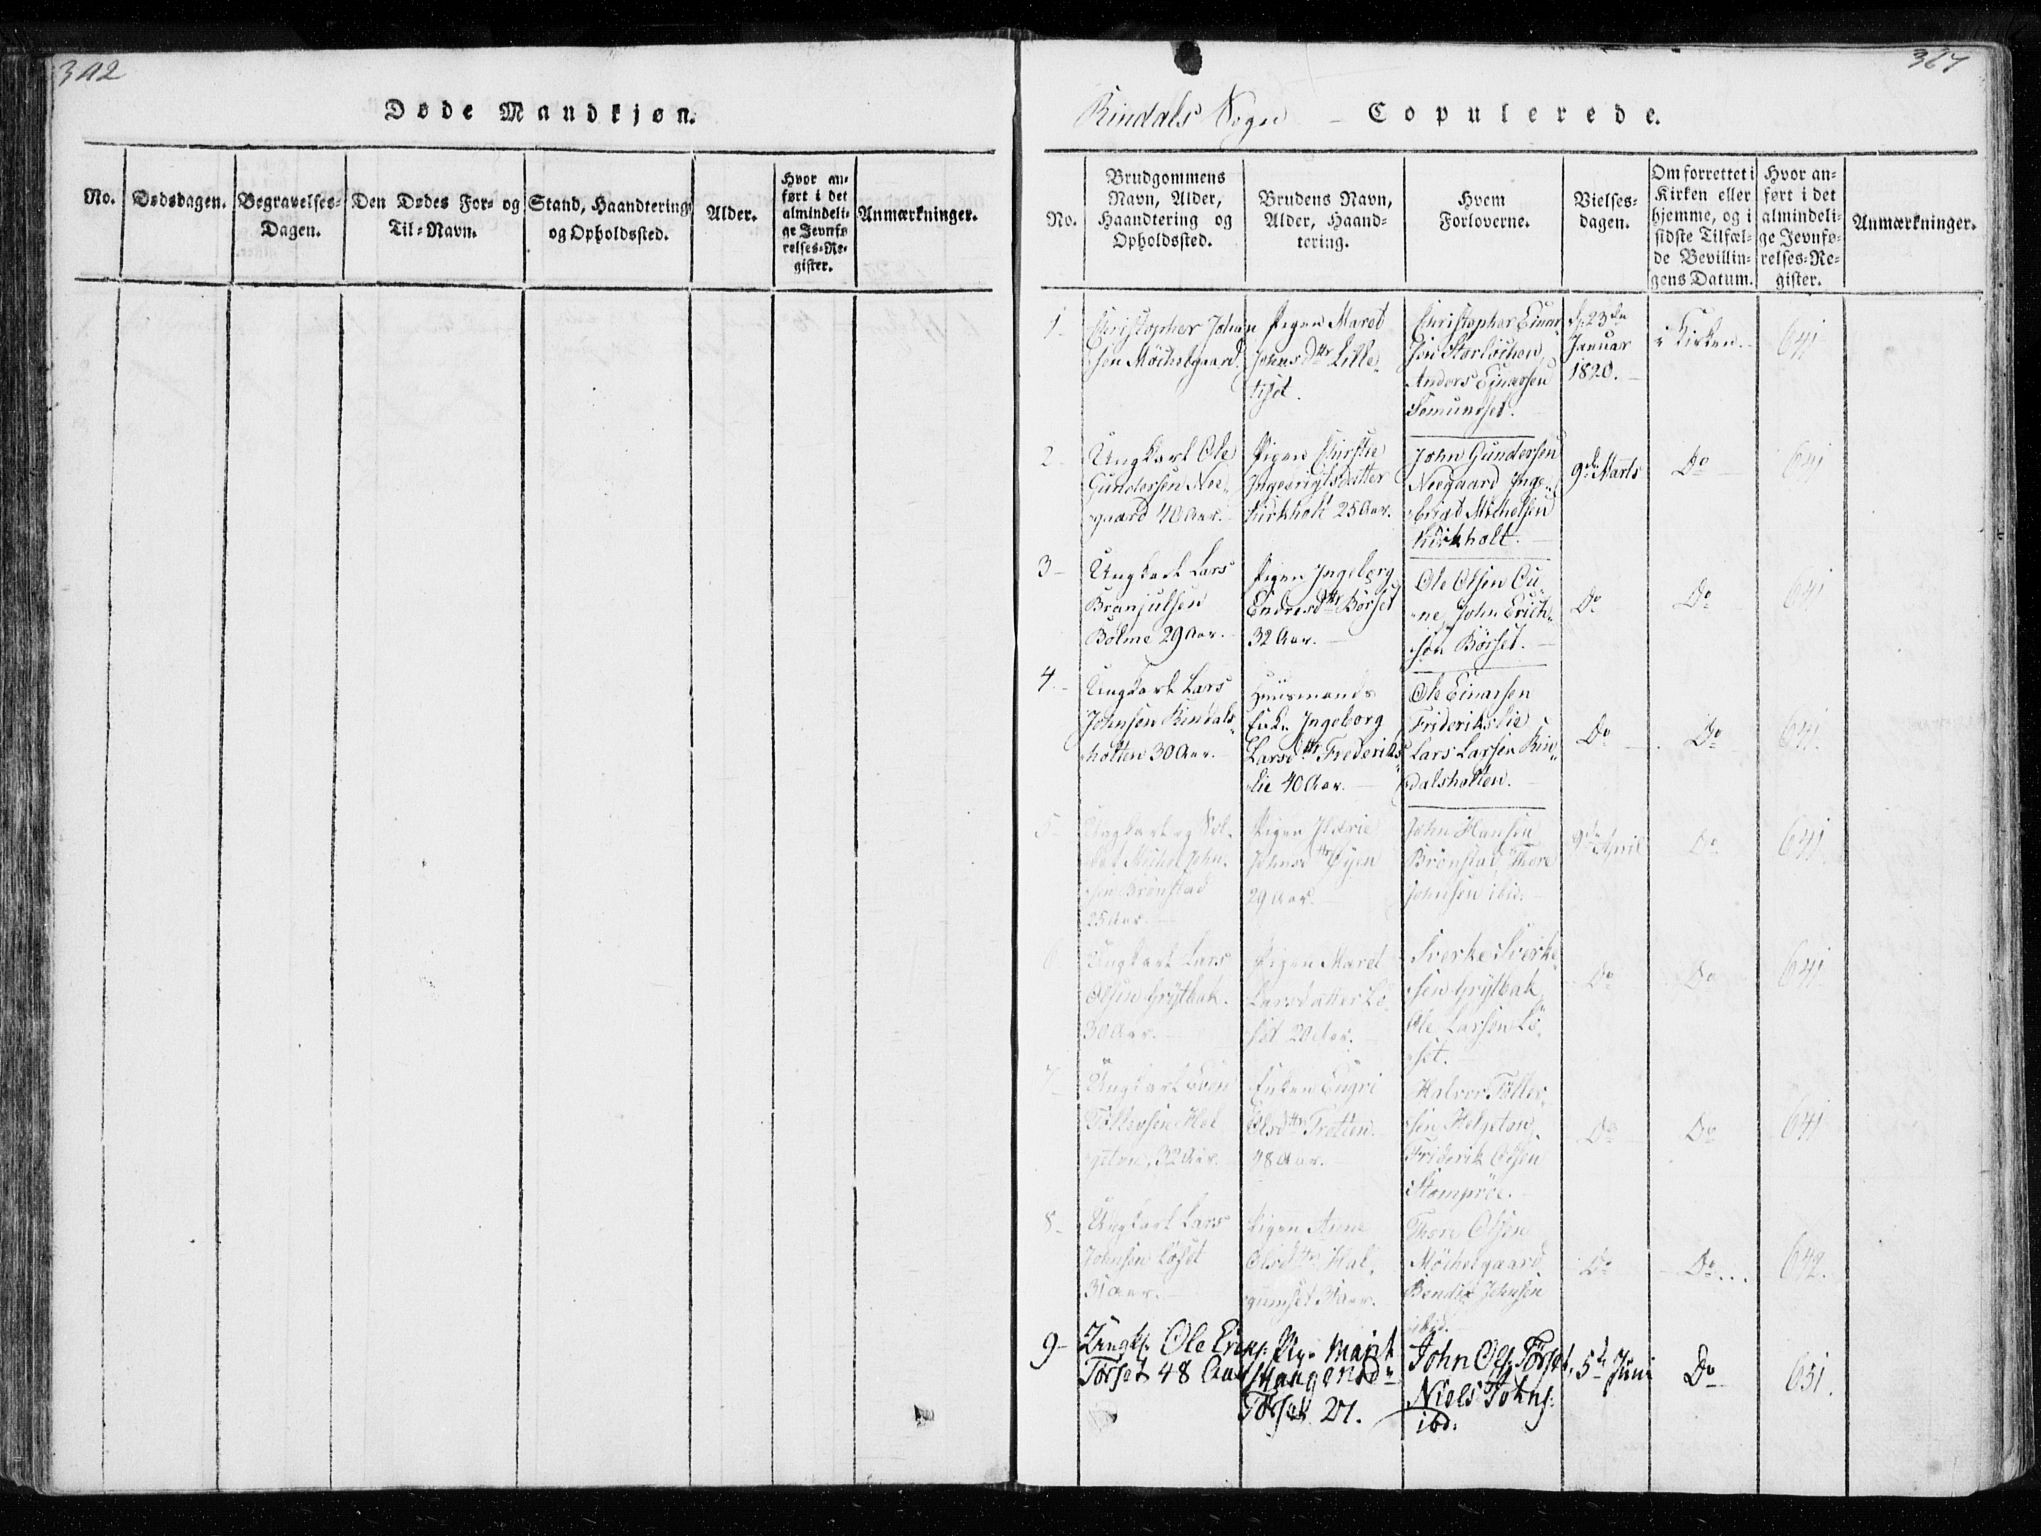 302
Døde Mandkjøn.
No.
Dødsdagen.
Begravelses-
Dagen.
Den Dødes For- og
Til-Navn.
Stand, Haandtering
og Opholdssted.
Alder.
Hvor an-
ført i det
almindeli-
ge Jevnfø-
relses-Re-
gister.
Anmærkninger.
367
Rindals Sogn - Copulerede.
No.
Brudgommens
Navn, Alder,
Haandtering og
Opholdssted.
Brudens Navn,
Alder, Haand-
tering.
Hvem
Forloverne.
Vielses-
dagen.
Om forrettet i
Kirken eller
hjemme, og i
sidste Tilfæl-
de Bevillin-
gens Datum.
Hvor an-
ført i det
almindeli-
ge Jevnfø-
relses-Re-
gister.
Anmærkninger.
1-
Christopher Johan
sen Möchelgaard.
Pigen Maret
Johns Dttr Lille-
Christopher Einar
sen Storløchen
Anders Einarsen
Romundset.
23de
Januar
1820.
i Kirken.
641
2-
Ungkarl Ole
Gundersen Nee-
gaard 40 Aar.
Pigen Kirstie
Ingebrigtsdatter
Kirkholt 25 Aar.
John Gundersen
Neegaard Inge-
brigt Michelsen
Kirkholt.
9de Marts
Do
641
3-
Ungkarl Lars
Branjulsen
Bolme 29 Aar.
Pigen Ingeborg
Endresdttr Börset
32 Aar.
Ole Olsen Ou-
ne, John Erich-
sen Börset.
Do
Do
641
4.-
Ungkarl Lars
Johnsen Rindals-
holten 30 Aar.
Huusmands
Enke Ingeborg
Larsdttr Frederiks-
lie 40 Aar.
Ole Einarsen
Frideriks lie
Lars Larsen Rin-
dalsholten.
Do
Do
641.
5-
Ungkarl og Sol-
dat Michel John-
sen Brönstad
25 Aar.
Pigen Marie
Johnsdttr Øyen
29 Aar.
John Hansen
Brönstad, Thore
Johnsen ibid.
9de April
Do
641
6
Ungkarl Lars
Olsen Grytbak.
30 Aar.
Pigen Maret
Larsdatter Lö-
set 20 Aar.
Sverke Sverke-
sen Grytbak
Ole Larsen Lö-
set.
Do
Do
641
7-
Ungkarl Even
Tollevsen Hel
gøten, 32 Aar.
Enken Engri
Olsdttr Tretten.
48 Aar.
Halvor Toller-
sen Helgeton
Friderik Olsen
Stomprøe.
Do
Do
641
8-
Ungkarl Lars
Johnsen Löset
31 Aar.
Pigen Anne
Olsdttr Hal-
gumset 31 Aar.
Thore Olsen
Möchelgaard
Bendix Johnsen
ibid.
Do
Do...
642.
9-
Ungk. Ole Eriks.
Torset 48 Aar
Pige Marit
Mangensdr
Torset 27.
John Ols. Törset,
Niels Johns.
ibd.
5te Juni
Do
651.